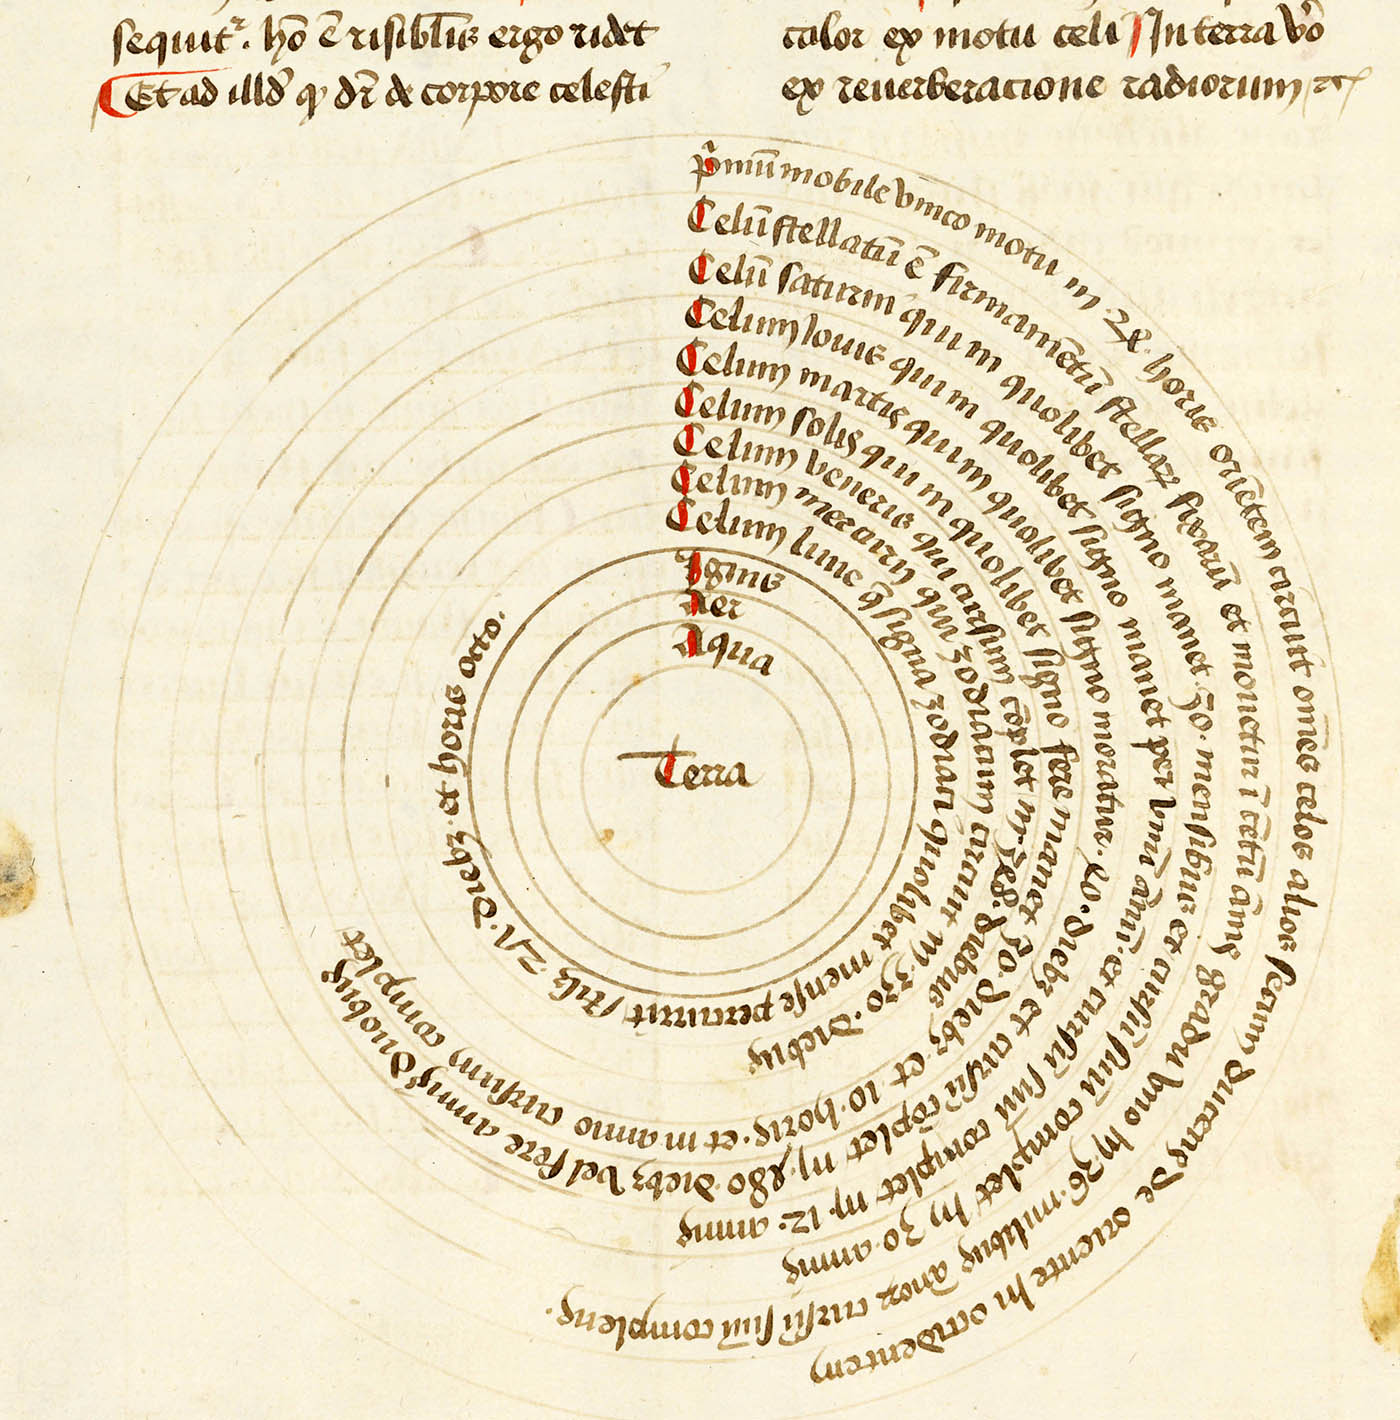 sequit᷑. hō ē risibilis ergo ridet
Et ad illđ qđ dr̄ de corpore celesti
calor ex motu celi In terra v̊o
ex reuerberacione radiorum ⁊c̄
p̓mū mobile vnico motu in 24 horis oriētem circuit om̄es celos alios secum ducens de oriente in occidentem
Celū stellatū ē firmamētū stellaꝝ fixarū et mouetur ī cētū ānis gradu vno in 36 milibus ānoꝝ cursū suū complens.
Celū saturni qui in quolibet signo manet 30 mensibus et cursū suū complet in 30 annis
Celum Iouis qui in quolibet signo manet per vnū ānū et cursū suū complet in 12 annis
Celum martis qui in quolibet signo moratur 60 diebꝫ et cursū cōplet in 780 diebꝫ vel fere annis duobus
Celum solis qui in quolibet signo fere manet 30 diebꝫ et 10 horis et in anno cursum complet
Celum veneris qui cursum cōplet in 348 diebus
Celum mercurii qui zodiacum circuit in 330 diebus
Celum lune q̄ signa zodiaci quolibet mense percurrit scilꝫ 27 diebꝫ et horis octo.
Ignis
Aer
Aqua
Terra